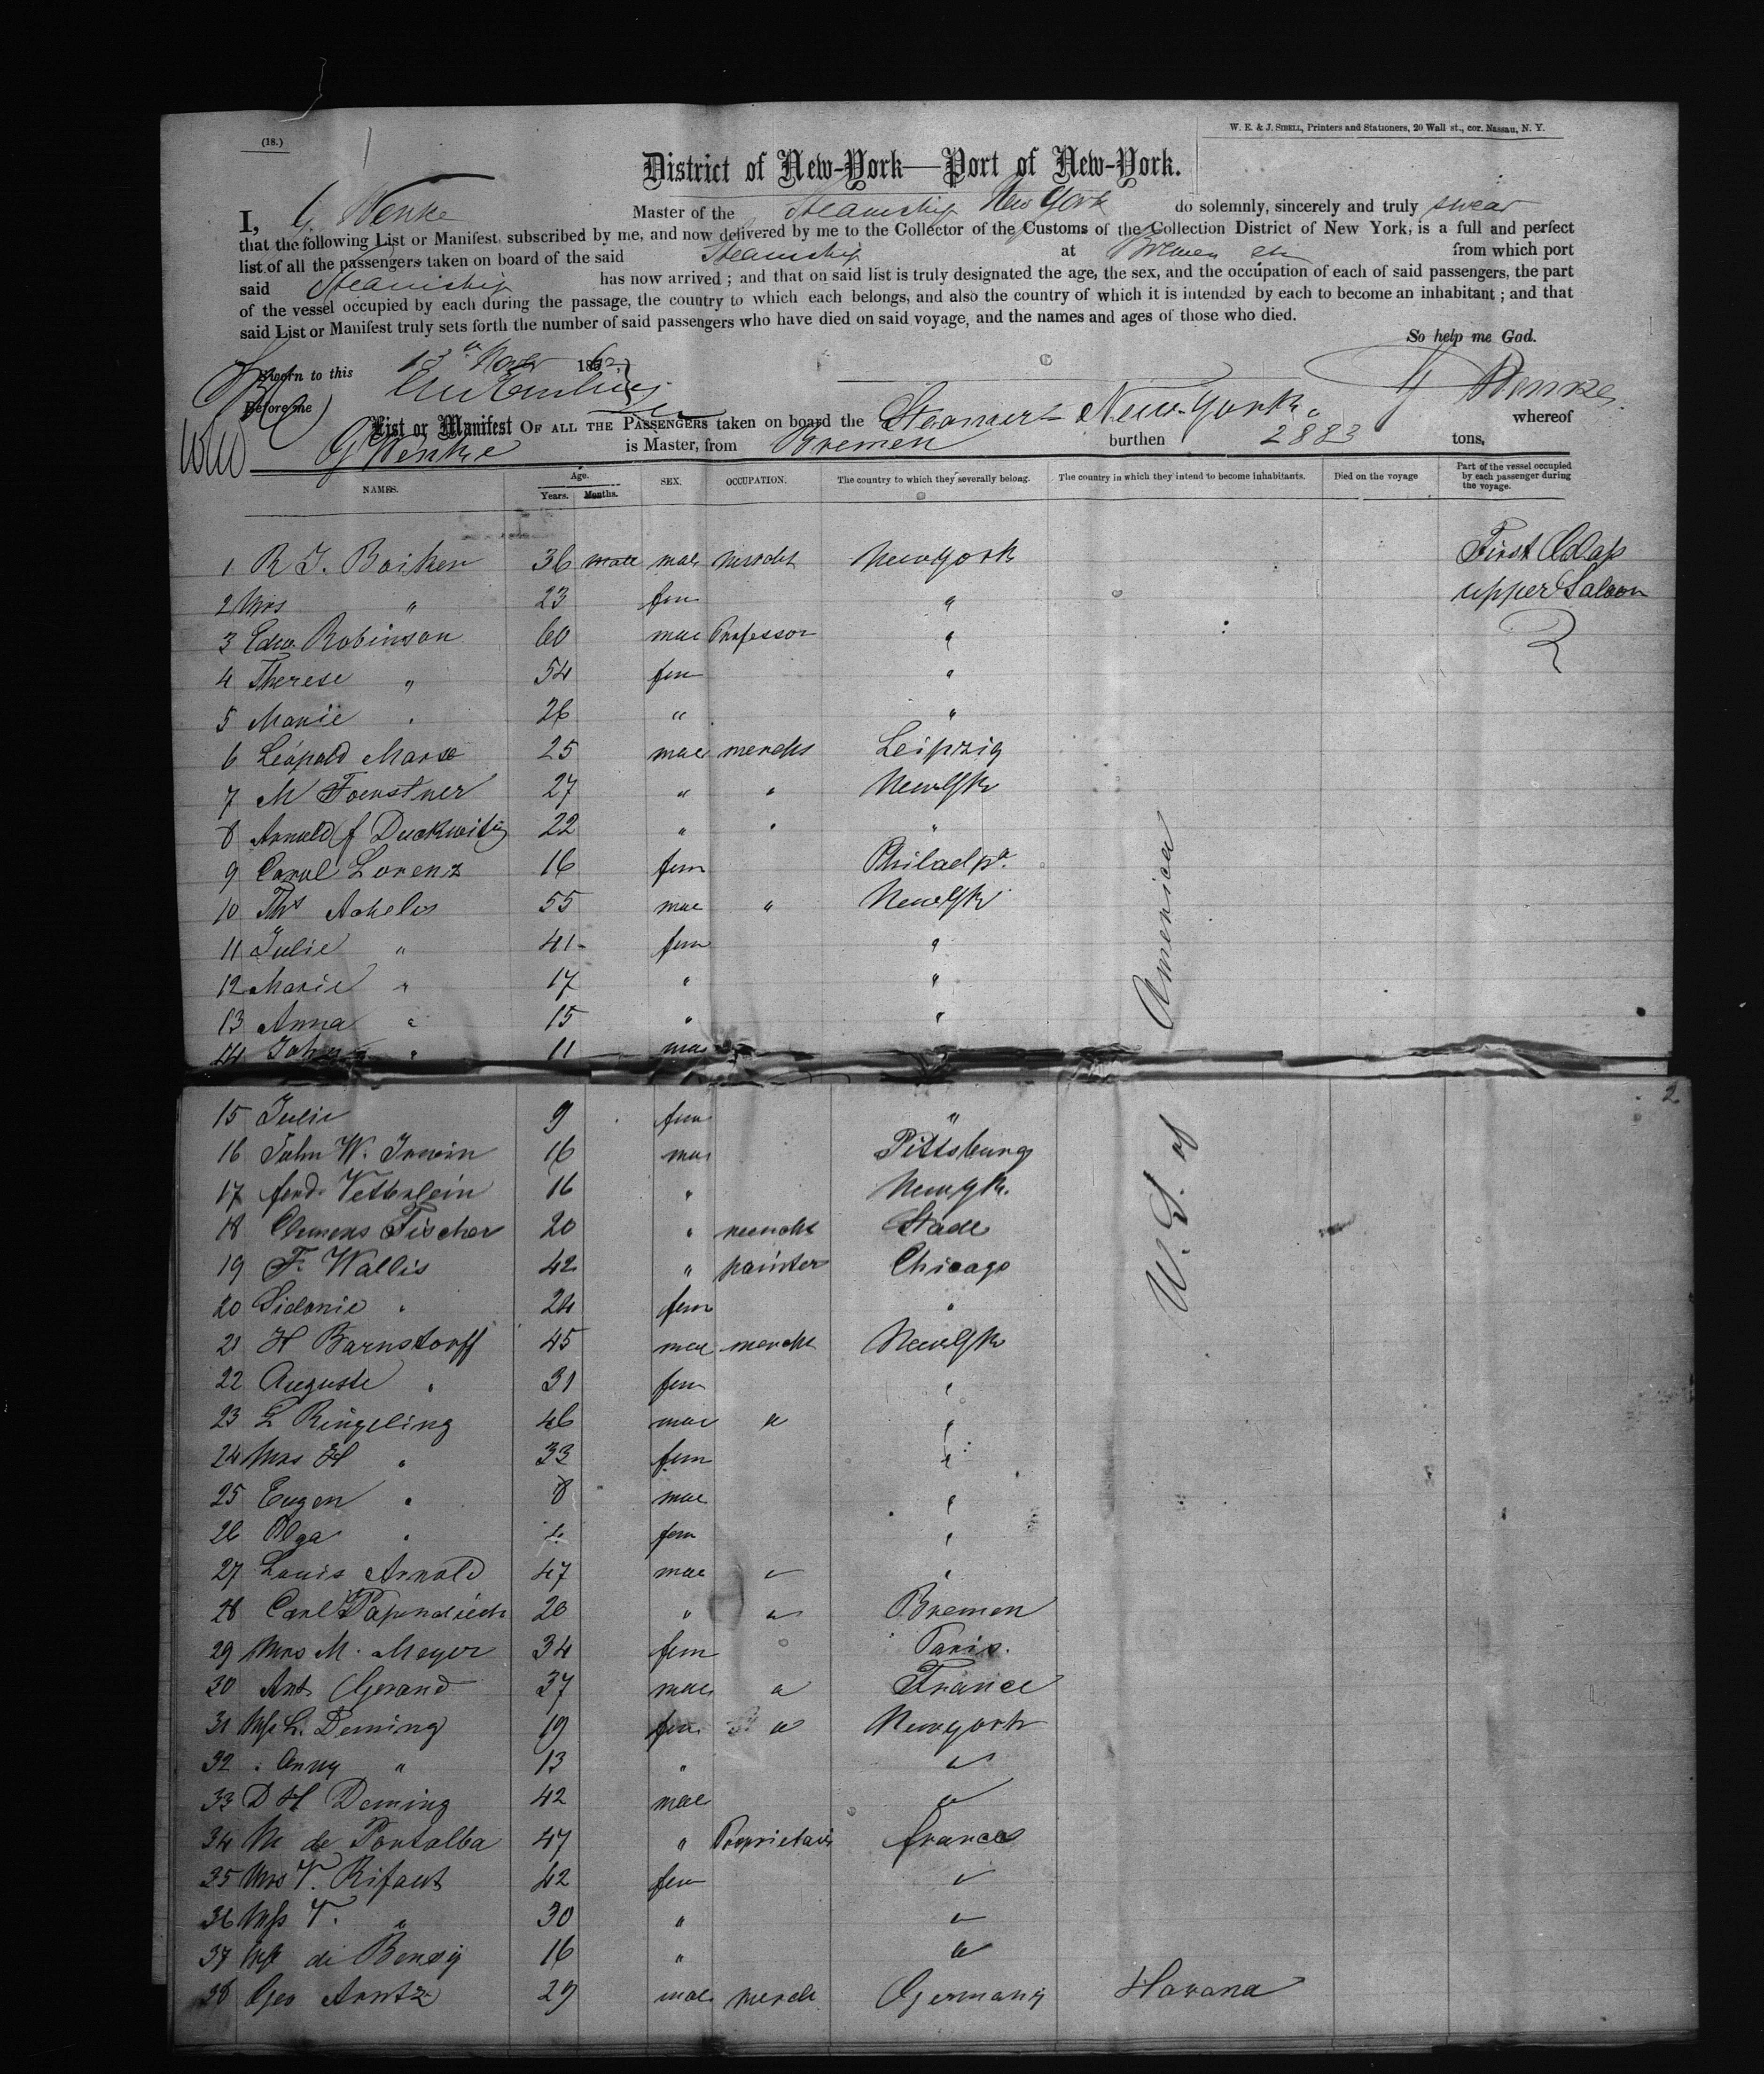 (18.)
W. E. & J. SIBELL, Printers and Stationers, 20 Wall st., cor. Nassau, N. Y.
District of New-York—Port of New-York.
I, G Wenke Master of the Steamship New York do solemnly, sincerely and truly swear
that the following List or Manifest, subscribed by me, and now delivered by me to the Collector of the Customs of the Collection District of New York, is a full and perfect
list of all the passengers taken on board of the said Steamship at Bremen from which port
said Steamship has now arrived; and that on said list is truly designated the age, the sex, and the occupation of each of said passengers, the part
of the vessel occupied by each during the passage, the country to which each belongs, and also the country of which it is intended by each to become an inhabitant; and that
said List or Manifest truly sets forth the number of said passengers who have died on said voyage, and the names and ages of those who died.
So help me God.
Sworn to this 13th Novbr 1862
Before me
G Wenke
List or Manifest OF ALL THE PASSENGERS taken on board the Steamer New-York. whereof
G Wenke is Master, from Bremen burthen 2883 tons,
NAMES. Age. Years. Months. SEX. OCCUPATION. The country to which they severally belong. The country in which they intend to become inhabitants. Died on the voyage Part of the vessel occupied by each passenger during the voyage.
1 R J. Barker 36 male mae mercht New York First Class
2 Mrs " 23 fem " upper Saloon
3 Edw. Robinson 60 mae Professor "
4 Therese " 54 fem "
5 Marie " 26 " "
6 Leopold Marx 25 mae merchs Leipzig
7 M Foerstner 27 " " New Yk
8 Arnold f Duckwitz 22 " " "
9 Carol Lorenz 16 fem Philadpa.
10 Ths Achelis 55 mae " New Yk
11 Julie " 41 fem "
12 Marie " 17 " "
13 Anna " 15 " "
14 John " 11 mae
15 Julie 9 fem "
16 John W. Irwin 16 mae Pittsburg
17 ferd. Vetterlein 16 " New Yk.
18 Clemens Fischer 20 " mercht Stade
19 F. Wallis 42 " painter Chicago
20 Sidonie " 24 fem "
21 H Barnstorff 45 mae mercht New Yk
22 Auguste " 31 fem "
23 L Ringeling 46 mae " "
24 Mrs H " 33 fem "
25 Eugen " 8 mae "
26 Olga " fem "
27 Louis Arnold 47 mae " "
28 Carl Papendieck 20 " " Bremen
29 Mrs M. Meyer 34 fem Paris.
30 Ant Gerand 37 mae " France
31 Miss L. Deming 19 fem " New york
32 " Anny " 13 " "
33 D H Deming 42 mae "
34 M de Pontalba 47 " Proprietair france
35 Mrs V. Rifaut 42 fem "
36 Miss V. " 30 " "
37 Miss di 16 " "
38 Geo Arntz 29 mae merch Germany Havana
U. S. of America
2